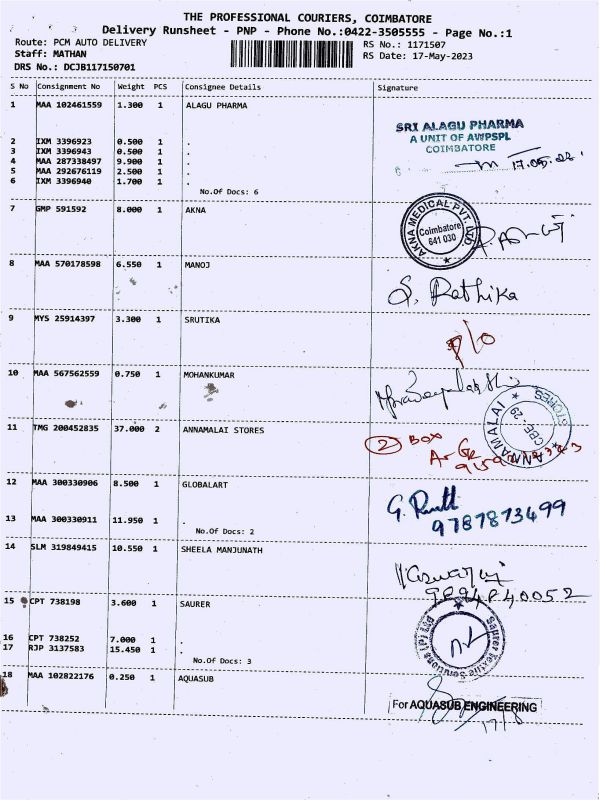 THE PROFESSIONAL COURIERS, COIMBATORE
Delivery Runsheet - PNP - Phone No.:0422-3505555 - Page No.:1
Route: PCM AUTO DELIVERY
RS No.: 1171507
Staff: MATHAN
RS Date: 17-May-2023
DRS No.: DCJB117150701
S No Consignment No Weight PCS Consignee Details Signature
1 MAA 102461559 1.300 1 ALAGU PHARMA
SRI ALAGU PHARMA
A UNIT OF AWPSPL
COIMBATORE
2 IXM 3396923 0.500 1 .
3 IXM 3396943 0.500 1 .
4 MAA 287338497 9.900 1 .
5 MAA 292676119 2.500 1 .
6 IXM 3396940 1.700 1 .
No.Of Docs: 6
7 GMP 591592 8.000 1 AKNA
AKNA MEDICAL PVT. LTD.
Coimbatore
641 030
8 MAA 570178598 6.550 1 MANOJ
S. Rathika
9 MYS 25914397 3.300 1 SRUTIKA
10 MAA 567562559 0.750 1 MOHANKUMAR
11 TMG 200452835 37.000 2 ANNAMALAI STORES
ANNAMALAI STORES
CBE - 29
2 BOX
12 MAA 300330906 8.500 1 GLOBALART
9787873499
13 MAA 300330911 11.950 1 .
No.Of Docs: 2
14 SLM 319849415 10.550 1 SHEELA MANJUNATH
9894840052
15 CPT 738198 3.600 1 SAURER
Saurer Textile Solutions (P) Ltd
16 CPT 738252 7.000 1 .
17 RJP 3137583 15.450 1 .
No.Of Docs: 3
18 MAA 102822176 0.250 1 AQUASUB
For AQUASUB ENGINEERING